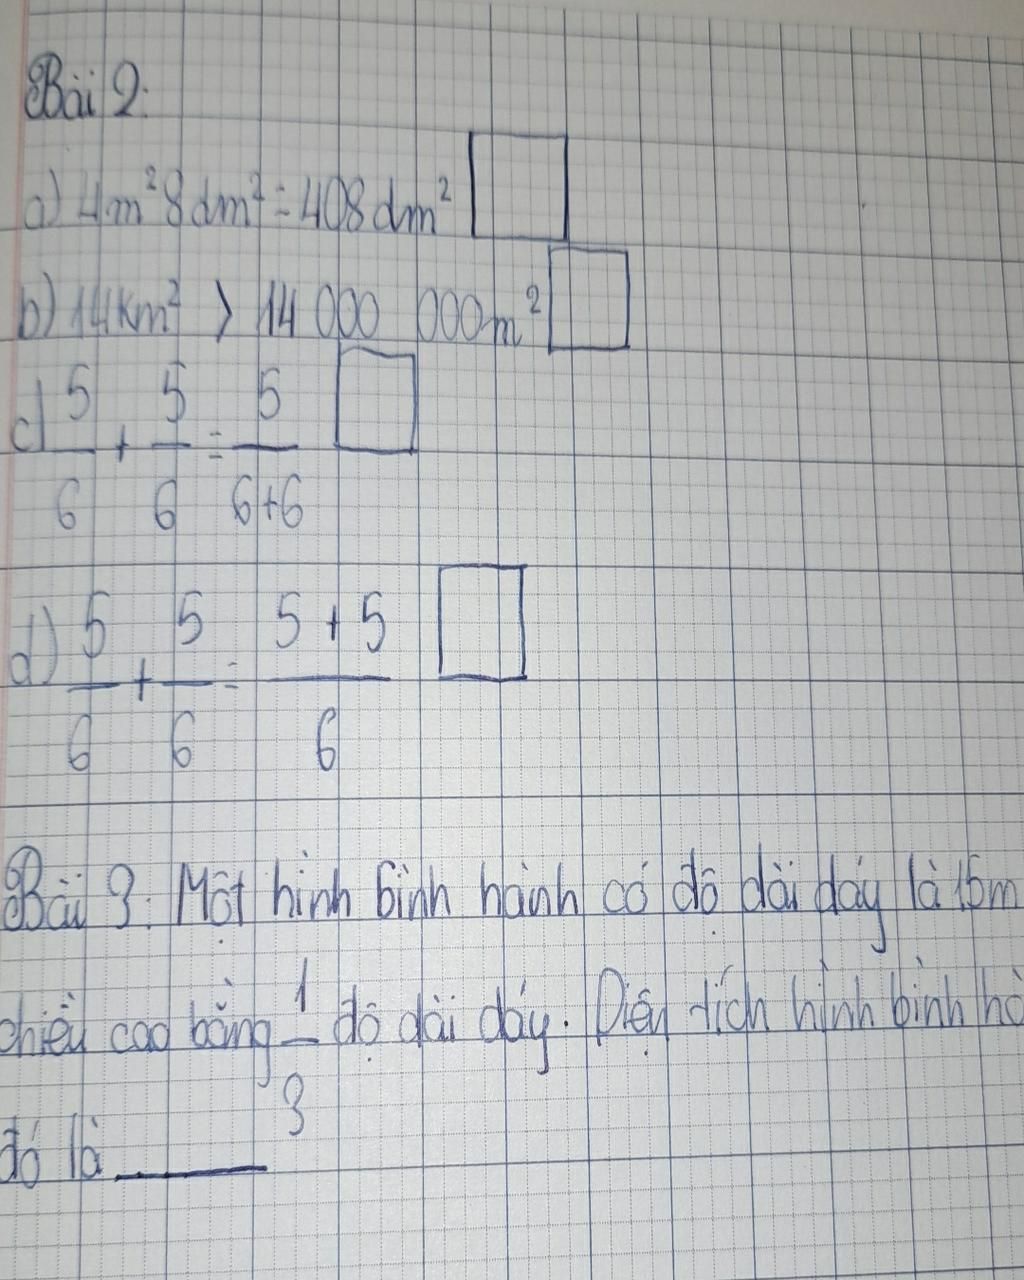 Bài 2:
a) 4m²8dm² = 408dm²
b) 14km² > 14 000 000m²
c) 5/6 + 5/6 = 5/6+6
d) 5/6 + 5/6 = 5 + 5/6
Bài 3: Một hình bình hành có độ dài đáy là 15m
chiều cao bằng 1/3 độ dài đáy. Diện tích hình bình hà
đó là